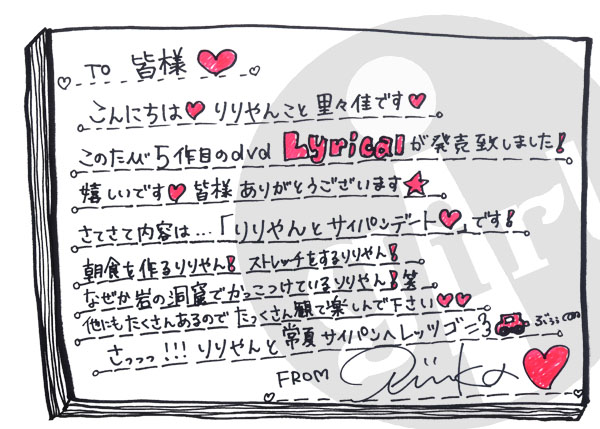 TO 皆様♥
こんにちは♥りりやんこと里々佳です♥
このたび5作目のdvd Lyricalが発売致しました!
嬉しいです♥皆様ありがとうございます★
さてさて内容は…「りりやんとサイパンデート♥」です!
朝食を作るりりやん! ストレッチをするりりやん!
なぜか岩の洞窟でかっこつけているりりやん!笑
他にもたくさんあるのでたっくさん観て楽しんで下さい♥♥
さっっっ!!!りりやんと常夏サイパンへレッツゴー=3 ぶぅぅ
FROM Ririka
girl